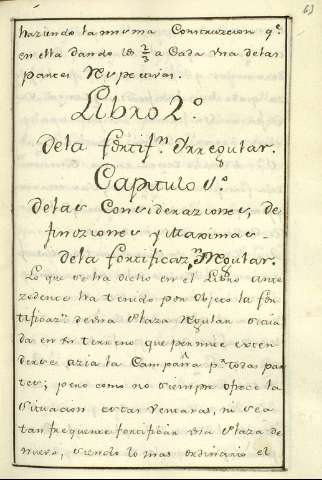 63
haziendo la misma Construzcion qe.
en ella dando los 2/3 a Cada una de las
partes Respectivas.
Libro 2.º
de la fortifn. Irregular.
Capitulo 1.º
de las Consideraziones, de
finiziones y Maximas
de la fortificazn. Irregular.
Lo que se ha dicho en el Libro ante
zedence ha tenido por objeto la for
tificazn. de una Plaza Regular situa
da en un terreno que permite exten
derse azia la Campaña pr. todas par
tes; pero como no siempre ofrece la
Situacion estas ventajas, ni sea
tan frequente fortificar una Plaza de
nuevo, siendo lo mas ordinario el